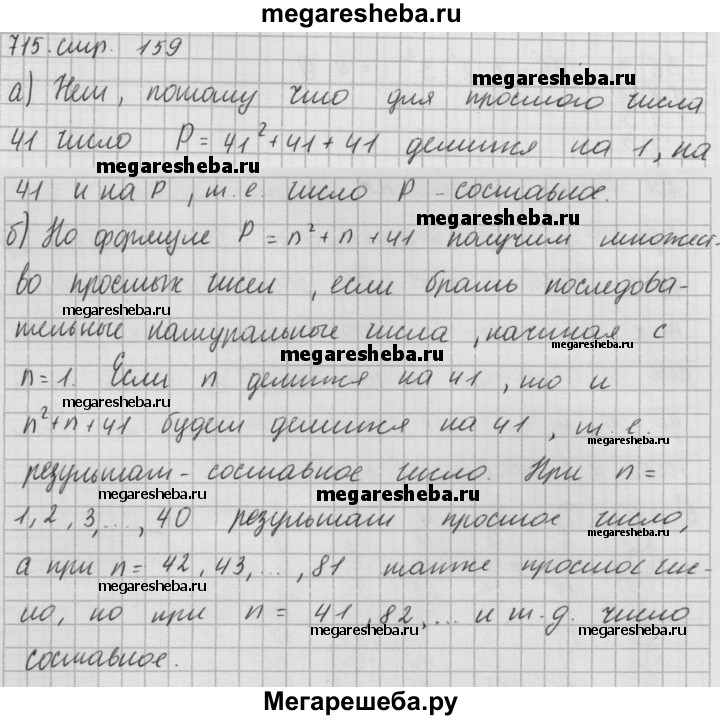 megaresheba.ru
715. стр. 159
megaresheba.ru
а) Нет, потому что для простого числа
41 число P = 41² + 41 + 41 делится на 1, на
megaresheba.ru
41 и на P, т.е. число P - составное.
megaresheba.ru
б) По формуле P = n² + n + 41 получим множест-
во простых чисел, если брать последова-
megaresheba.ru
тельные натуральные числа, начиная с
megaresheba.ru
megaresheba.ru
n = 1. Если n делится на 41, то и
megaresheba.ru
n² + n + 41 будет делится на 41, т.е.
megaresheba.ru
результат - составное число. При n =
megaresheba.ru
megaresheba.ru
1, 2, 3, ..., 40 результат простое число,
megaresheba.ru
а при n = 42, 43, ..., 81 также простое чис-
megaresheba.ru
ло, но при n = 41, 82, ... и т.д. число
megaresheba.ru
megaresheba.ru
составное.
Мегарешеба.ру